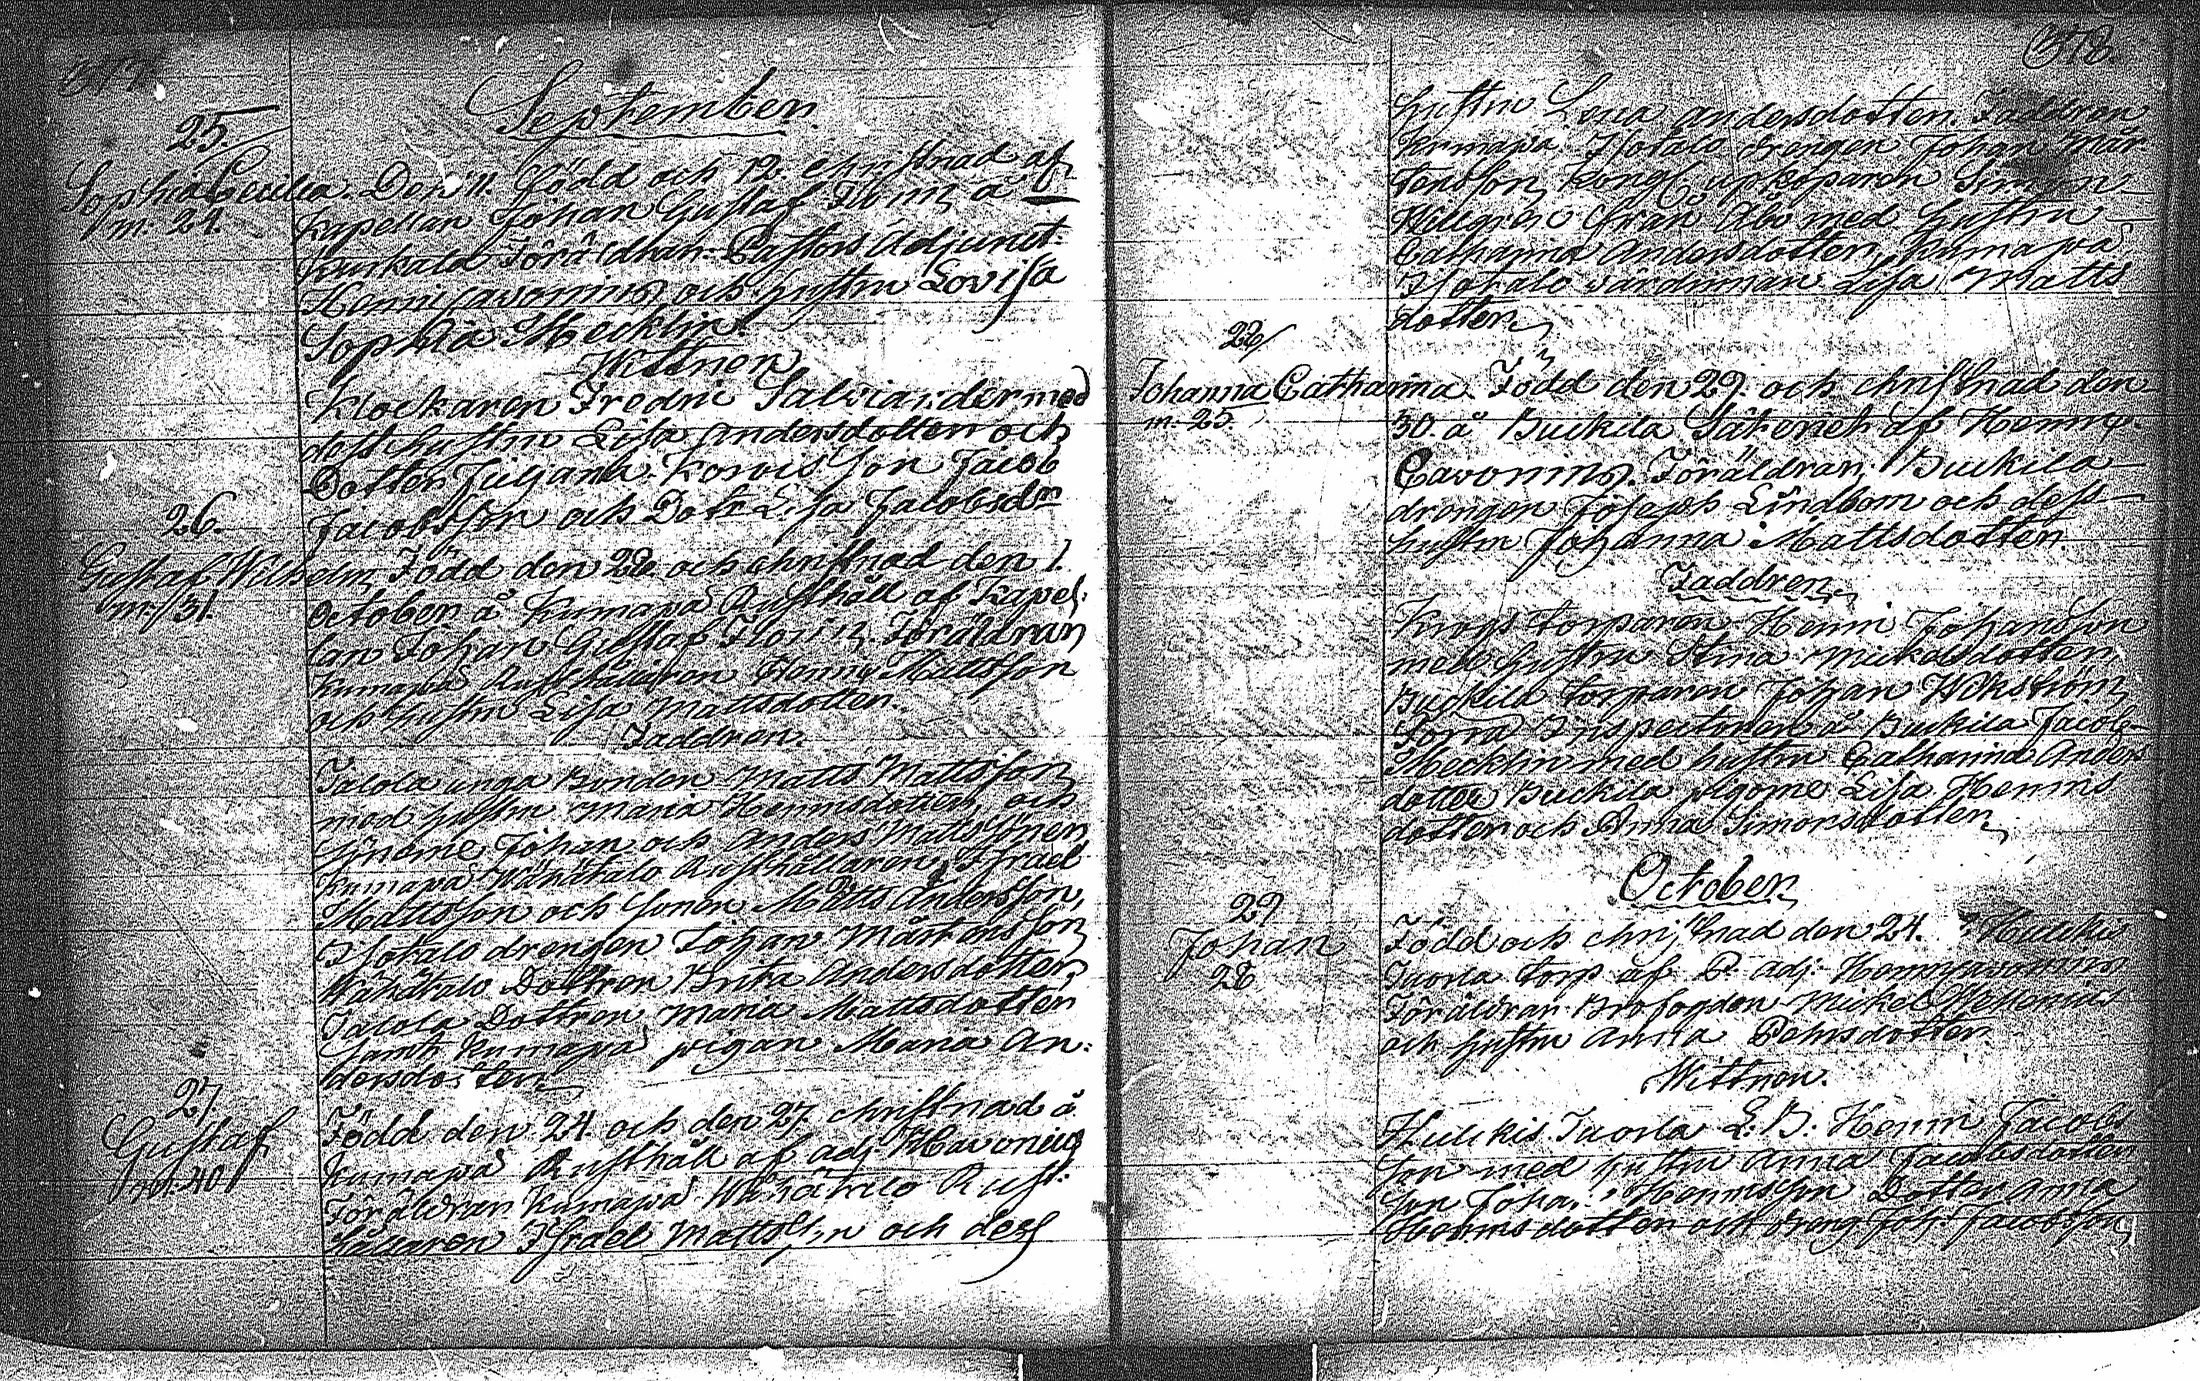 377.
September.
25.
Sophia Cecilia
m. 24.
Den 11. Född och 12. christnad af
Kapellan Johan Gustaf Florin å
Kunkala Föräldrar: Pastors Adjunct:
Henric Cavonius och hustru Lovisa
Sophia Mecklin.
Wittnen
Klockaren Fredric Salviander med
dess hustru Lisa Andersdotter och
Dotter Juljana. Korvis Son Jacob
Jacobsson och Dotr Lisa Jacobsdr
26.
Gustaf Wilhelm
m. 31.
Född den 28 och christnad den 1.
October å Kumapä Rusthåll af Kapel-
lan Johan Gustaf Florin. Föräldrar
Kumapä Rusthållaren Henric Mattsson
och hustru Lisa Mattsdotter.
Faddren.
Talola unga Bonden Matts Mattsson
med hustru Maria Henricsdotter, och
Sönerne Johan och Anders Mattssöner
Kumapä Wähätalo Rusthållaren Israel
Mattsson och Sonen Matts Andersson,
Isotalo drengen Johan Mårtensson
Wähätalo Dottren Brita Andersdotter,
Talola Dottren Maria Mattsdotter
samt Kumapä pigan Maria An-
dersdotter.
27.
Gustaf
m. 40
Född den 24 och den 27. christnad å
Kumapä Rusthåll af adj. H Cavonius
Föräldrar Kumapä Wähätalo Rust-
hållaren Israel Mattsson och dess
378.
hustru Lena Andersdotter. Faddren
Kumapä Isotalo drengen Johan Mår
tensson, Kongl. upköparen Simon
från Åbo med hustru
Catharina Andersdotter, Kumapä
Isotalo värdinnan Lisa Matts
dotter.
28
Johanna Catharina
m. 25.
Född den 29. och christnad den
30. å Buckila Säterieh af Henric
Cavonius. Föräldrar: Buckila
drengen Joseph Lindbom och dess
hustru Johanna Mattsdotter
Faddren
Krogs torparen Henric Johansson
med hustru Stina Mickelsdotter,
Buckila torparen Johan Wikström,
Förra Inspectoren å Buckila Jacob
Mecklin med hustru Catharina Anders
dotter Buckila pigorne Lisa Henrics
dotter och Anna Simonsdotter.
October
29
Johan
28
Född och christnad den 24. å Huickis
Tuorla torp af P. adj: Henric Cavonius
Föräldrar Brofogden Mickel
och hustru Anna
Wittnen.
Huickis Tuorla L. B. Henric Jacobs
son med hustru Anna Jacobsdotter
Son Johan Henricsson Dotter Anna
Henricsdotter och dreng Joh. Jacobsson